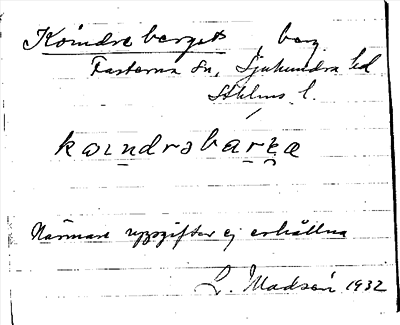 Koindrabergets, berg
Fasterna sn, Sjuhundra hd
Sthlms l.
kωındrabarʒa
Närmare uppgifter ej erhållna
L. Madsén 1932